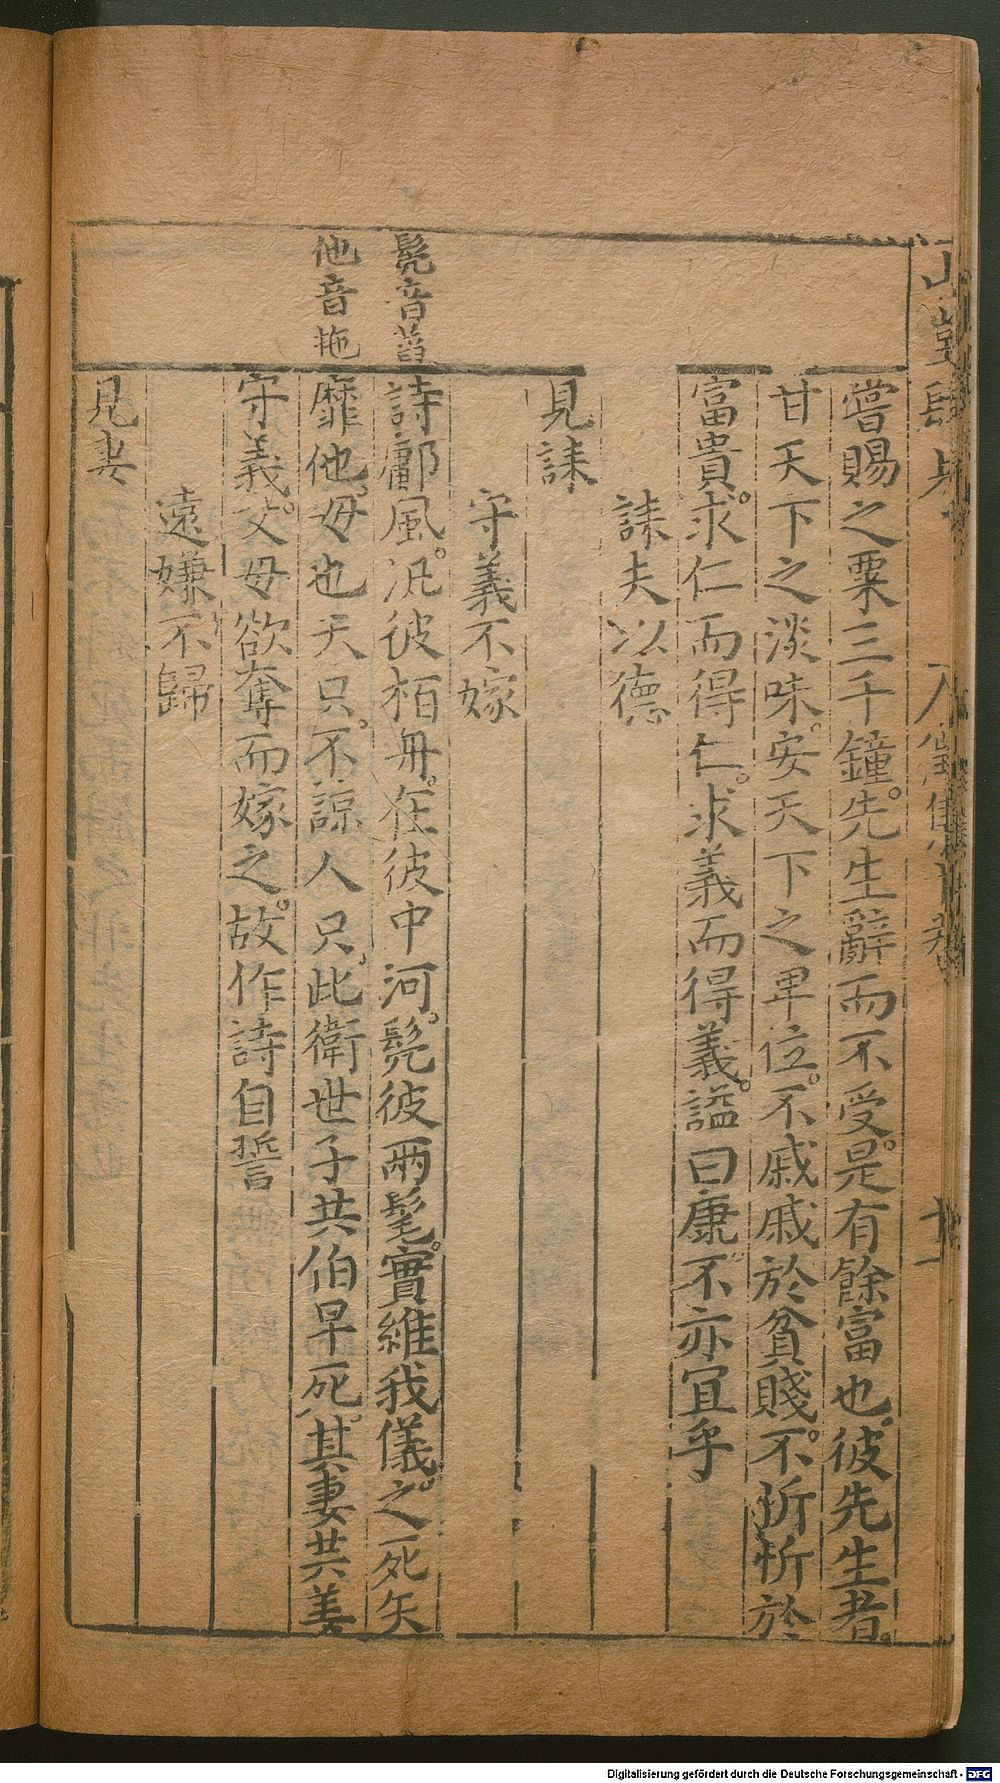 嘗賜之粟三千鐘。先生辭而不受。是有餘富也。彼先生者。
甘天下之淡味。安天下之卑位。不戚戚於貧賤。不忻忻於
富貴。求仁而得仁。求義而得義。謚曰康。不亦宜乎
誄夫以德
見誄
守義不嫁
髧音萏
詩鄘風。汎彼栢舟。在彼中河。髧彼兩髦。實維我儀。之死矢
他音拖
靡他。母也天只。不諒人只。此衛世子共伯早死。其妻共姜
守義。父母欲奪而嫁之。故作詩自誓
遠嫌不歸
見妻
Digitalisierung gefördert durch die Deutsche Forschungsgemeinschaft - DFG